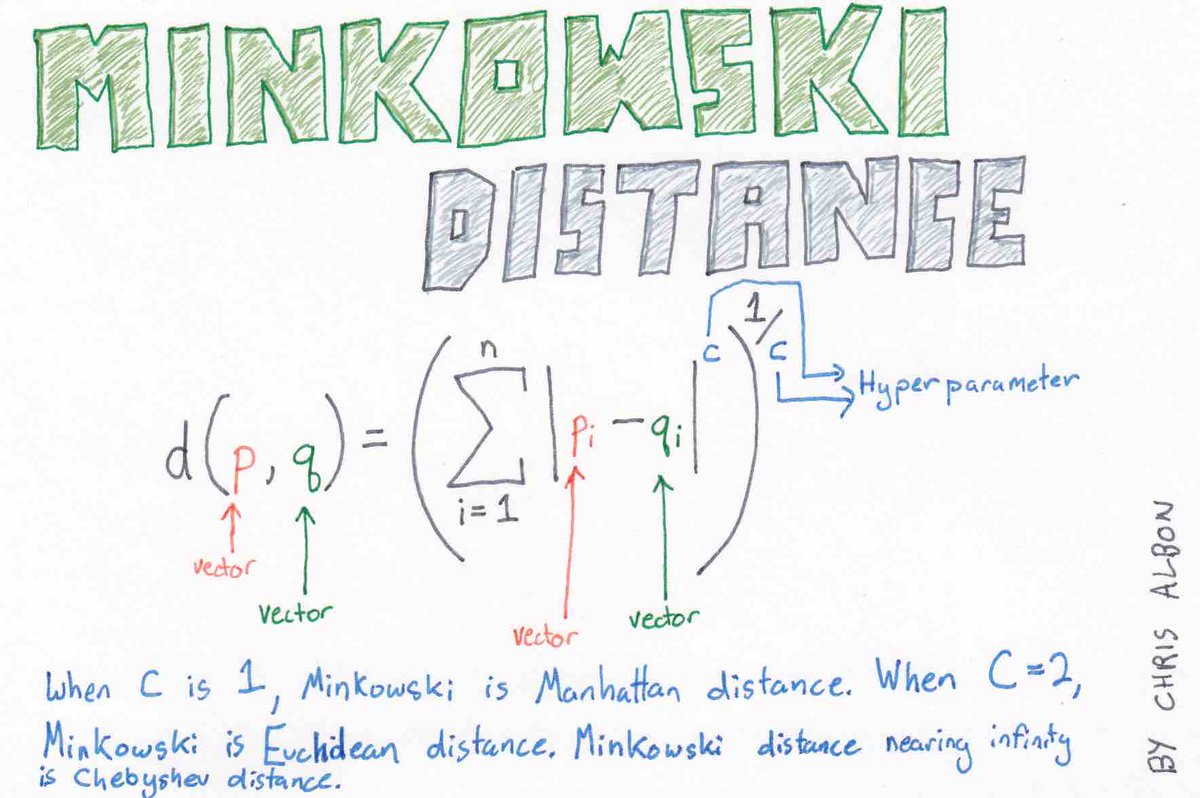 MINKOWSKI
DISTANCE
d(p, q) = (∑ⁿᵢ₌₁ |pᵢ − qᵢ|ᶜ)^1/c
Hyperparameter
vector
vector
vector
vector
When C is 1, Minkowski is Manhattan distance. When C=2,
Minkowski is Euclidean distance. Minkowski distance nearing infinity
is Chebyshev distance.
BY CHRIS ALBON